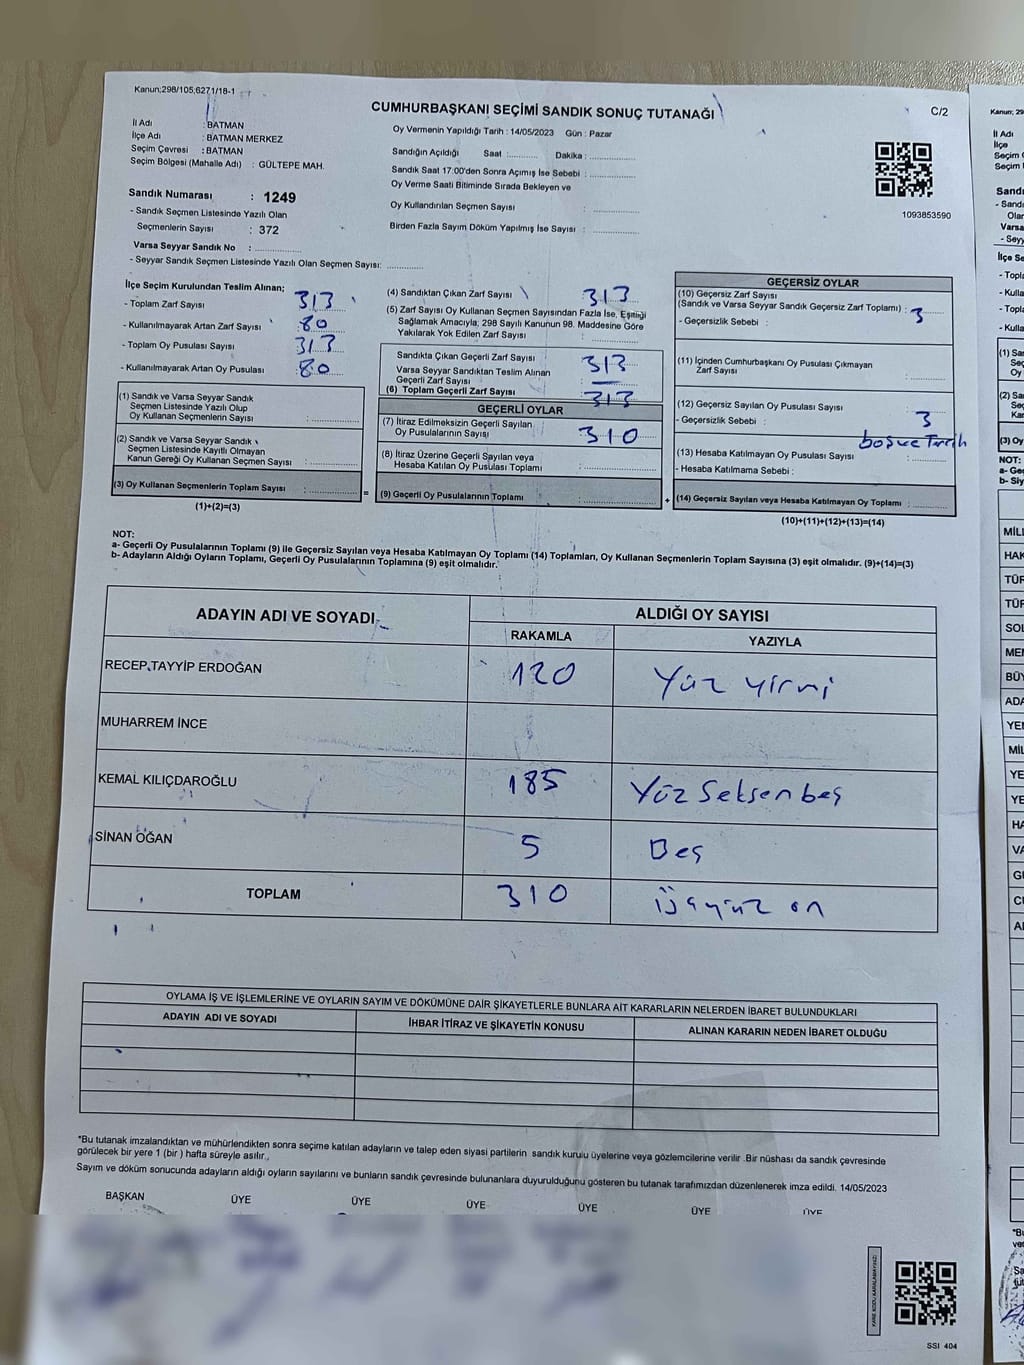 Kanun;298/105,6271/18-1
CUMHURBAŞKANI SEÇİMİ SANDIK SONUÇ TUTANAĞI
C/2
İl Adı : BATMAN
İlçe Adı : BATMAN MERKEZ
Seçim Çevresi : BATMAN
Seçim Bölgesi (Mahalle Adı) : GÜLTEPE MAH.
Sandık Numarası : 1249
- Sandık Seçmen Listesinde Yazılı Olan
Seçmenlerin Sayısı : 372
Varsa Seyyar Sandık No :
- Seyyar Sandık Seçmen Listesinde Yazılı Olan Seçmen Sayısı:
Oy Vermenin Yapıldığı Tarih : 14/05/2023 Gün : Pazar
Sandığın Açıldığı Saat : Dakika :
Sandık Saat 17:00'den Sonra Açımış İse Sebebi :
Oy Verme Saati Bitiminde Sırada Bekleyen ve
Oy Kullandırılan Seçmen Sayısı :
Birden Fazla Sayım Döküm Yapılmış İse Sayısı :
1093853590
İlçe Seçim Kurulundan Teslim Alınan;
- Toplam Zarf Sayısı 313
- Kullanılmayarak Artan Zarf Sayısı : 80
- Toplam Oy Pusulası Sayısı 313
- Kullanılmayarak Artan Oy Pusulası : 80
(1) Sandık ve Varsa Seyyar Sandık
Seçmen Listesinde Yazılı Olup
Oy Kullanan Seçmenlerin Sayısı :
(2) Sandık ve Varsa Seyyar Sandık
Seçmen Listesinde Kayıtlı Olmayan
Kanun Gereği Oy Kullanan Seçmen Sayısı :
(3) Oy Kullanan Seçmenlerin Toplam Sayısı :
(1)+(2)=(3)
(4) Sandıktan Çıkan Zarf Sayısı 313
(5) Zarf Sayısı Oy Kullanan Seçmen Sayısından Fazla İse, Eşitliği
Sağlamak Amacıyla; 298 Sayılı Kanunun 98. Maddesine Göre
Yakılarak Yok Edilen Zarf Sayısı :
Sandıkta Çıkan Geçerli Zarf Sayısı 313
Varsa Seyyar Sandıktan Teslim Alınan
Geçerli Zarf Sayısı —
(6) Toplam Geçerli Zarf Sayısı 313
GEÇERLİ OYLAR
(7) İtiraz Edilmeksizin Geçerli Sayılan
Oy Pusulalarının Sayısı 310
(8) İtiraz Üzerine Geçerli Sayılan veya
Hesaba Katılan Oy Pusulası Toplamı :
= (9) Geçerli Oy Pusulalarının Toplamı :
GEÇERSİZ OYLAR
(10) Geçersiz Zarf Sayısı
(Sandık ve Varsa Seyyar Sandık Geçersiz Zarf Toplamı) : 3
- Geçersizlik Sebebi :
(11) İçinden Cumhurbaşkanı Oy Pusulası Çıkmayan
Zarf Sayısı :
(12) Geçersiz Sayılan Oy Pusulası Sayısı 3
- Geçersizlik Sebebi :
(13) Hesaba Katılmayan Oy Pusulası Sayısı :
- Hesaba Katılmama Sebebi :
+ (14) Geçersiz Sayılan veya Hesaba Katılmayan Oy Toplamı :
(10)+(11)+(12)+(13)=(14)
NOT:
a- Geçerli Oy Pusulalarının Toplamı (9) ile Geçersiz Sayılan veya Hesaba Katılmayan Oy Toplamı (14) Toplamları, Oy Kullanan Seçmenlerin Toplam Sayısına (3) eşit olmalıdır. (9)+(14)=(3)
b- Adayların Aldığı Oyların Toplamı, Geçerli Oy Pusulalarının Toplamına (9) eşit olmalıdır.
ADAYIN ADI VE SOYADI ALDIĞI OY SAYISI
RAKAMLA YAZIYLA
RECEP TAYYİP ERDOĞAN 120 Yüz yirmi
MUHARREM İNCE
KEMAL KILIÇDAROĞLU 185 Yüz Seksen beş
SİNAN OĞAN 5 Beş
TOPLAM 310 üçyüz on
OYLAMA İŞ VE İŞLEMLERİNE VE OYLARIN SAYIM VE DÖKÜMÜNE DAİR ŞİKAYETLERLE BUNLARA AİT KARARLARIN NELERDEN İBARET BULUNDUKLARI
ADAYIN ADI VE SOYADI İHBAR İTİRAZ VE ŞİKAYETİN KONUSU ALINAN KARARIN NEDEN İBARET OLDUĞU
*Bu tutanak imzalandıktan ve mühürlendikten sonra seçime katılan adayların ve talep eden siyasi partilerin sandık kurulu üyelerine veya gözlemcilerine verilir .Bir nüshası da sandık çevresinde
görülecek bir yere 1 (bir ) hafta süreyle asılır.
Sayım ve döküm sonucunda adayların aldığı oyların sayılarını ve bunların sandık çevresinde bulunanlara duyurulduğunu gösteren bu tutanak tarafımızdan düzenlenerek imza edildi. 14/05/2023
BAŞKAN ÜYE ÜYE ÜYE ÜYE ÜYE ÜYE
SSI 404